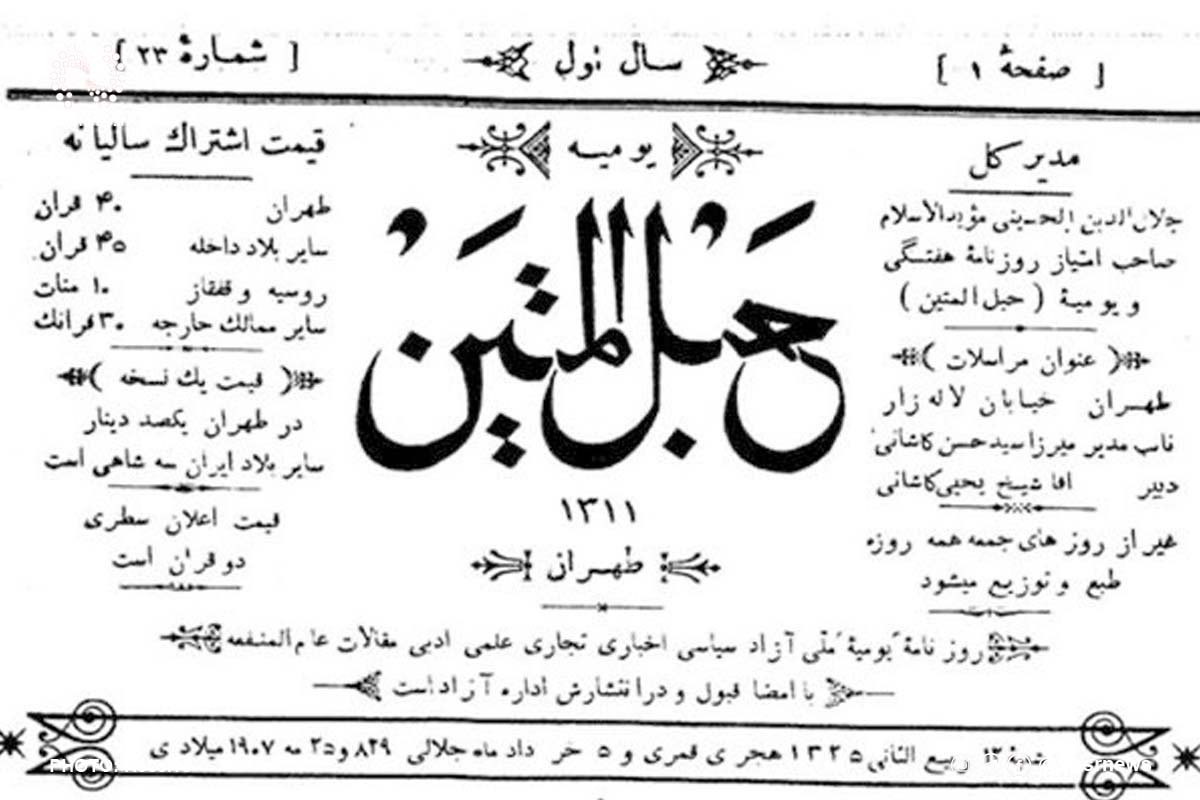 [ صفحهٔ ۱ ]
سال اول
[ شمارهٔ ۲۳ ]
مدیر کل
جلال‌الدین الحسینی مؤیدالاسلام
صاحب امتیاز روزنامهٔ هفتگی
و یومیهٔ ( حبل المتین )
( عنوان مراسلات )
طهران خیابان لاله زار
نایب مدیر میرزا سید حسن کاشانی
دبیر اقا شیخ یحیی کاشانی
غیر از روز های جمعه همه روزه
طبع و توزیع میشود
یومیه
حَبلُ المَتینْ
۱۳۱۱
طهران
قیمت اشتراك سالیانه
طهران ۴۰ قران
سایر بلاد داخله ۴۵ قران
روسیه و قفقاز ۱۰ منات
سایر ممالك خارجه ۳۰ فرانك
( قیمت یك نسخه )
در طهران یکصد دینار
سایر بلاد ایران سه شاهی است
قیمت اعلان سطری
دو قران است
روز نامهٔ یومیهٔ ملّی آزاد سیاسی اخباری تجاری علمی ادبی مقالات عام‌المنفعه
با امضا قبول و در انتشارش اداره آزاد است
ربیع الثانی ۱۳۲۵ هجری قمری و ۵ خر داد ماه جلالی ۸۲۹ و ۲۵ مه ۱۹۰۷ میلادی
PHOTO